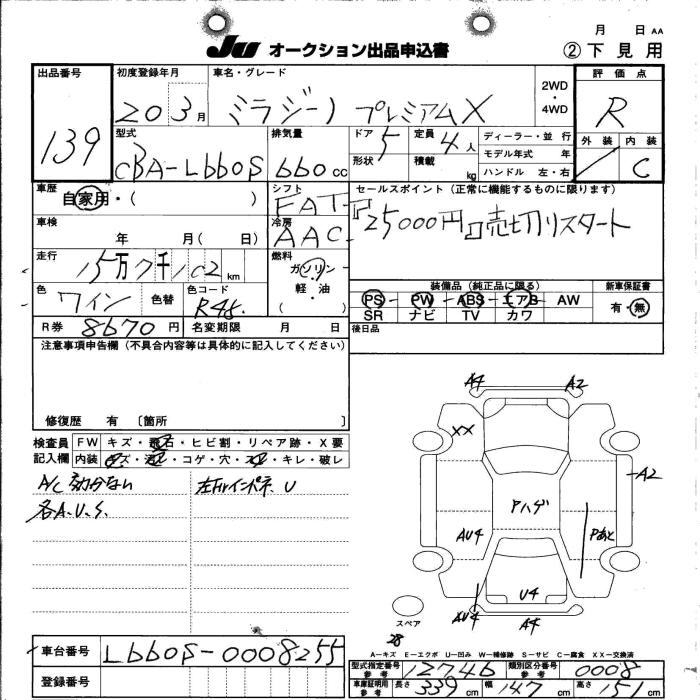 月 日 AA
JU オークション出品申込書 ②下見用
出品番号 139
初度登録年月 20 3月
車名・グレード ミラジーノ プレミアムX
2WD・4WD
評価点 R
外装 内装 C
型式 CBA-L660S
排気量 660 cc
ドア 5
形状
定員 4人
積載 kg
ディーラー・並行
モデル年式 年
ハンドル 左・右
車歴 自家用・( )
シフト FAT
セールスポイント(正常に機能するものに限ります)
25000円 売切りスタート
車検 年 月( 日)
冷房 AAC
走行 15万7千102km
燃料 ガソリン・軽油・( )
色 ワイン 色替
色コード R48
装備品(純正品に限る)
PS PW ABS エアB AW
SR ナビ TV カワ
新車保証書 有・無
R券 8670円 名変期限 月 日
後日品
注意事項申告欄(不具合内容等は具体的に記入してください)
修復歴 有 〔箇所 〕
検査員記入欄
FW キズ・飛石・ヒビ割・リペア跡・X要
内装 キズ・汚れ・コゲ・穴・スレ・キレ・破レ
A/C 効かない
各A.U.S.
A4 A2
XX
A2
Pハゲ
AU4 Pあと
U4
AU4 A4
スペア
28
A-キズ E-エクボ U-凹み W-補修跡 S-サビ C-腐食 XX-交換済
車台番号 L660S-0008255
登録番号
型式指定番号 参考 12746 類別区分番号 参考 0008
車庫証明用 参考 長さ 339cm 幅 147cm 高さ 151cm